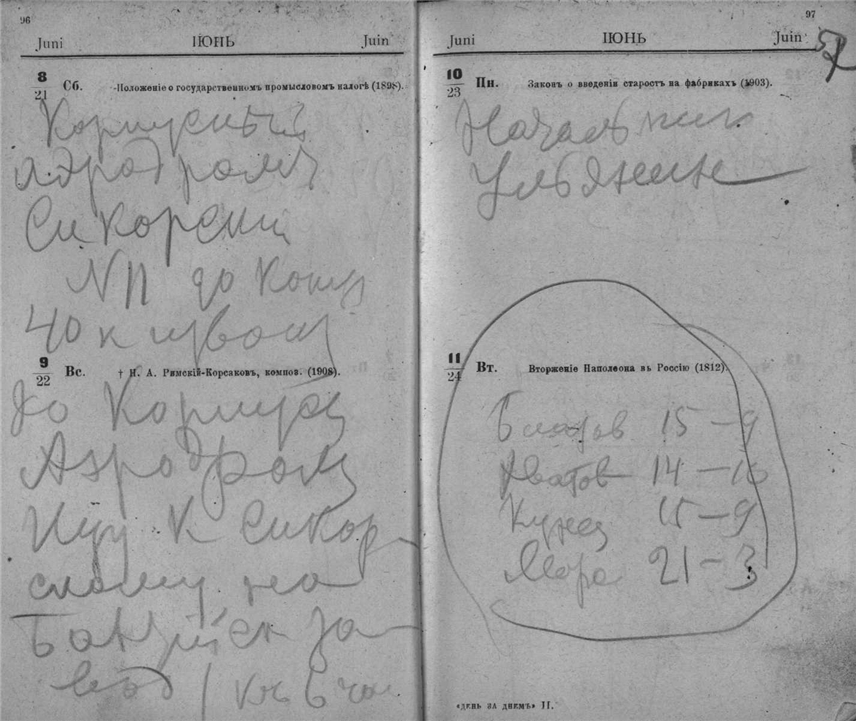 96
Juni ІЮНЬ Juin
8
21 Сб. Положеніе о государственномъ промысловомъ налогѣ (1898).
Корпусный
аэродромъ
Сикорский
NП до Конц
40 к извощ
9
22 Вс. † Н. А. Римскій-Корсаковъ, композ. (1908).
до Корпусн
Аэродром
Иду к Сикор-
скому на
Балтійск за-
вод
97
Juni ІЮНЬ Juin
10
23 Пн. Законъ о введеніи старостъ на фабрикахъ (1903).
Начальник
Ульянин
11
24 Вт. Вторженіе Наполеона въ Россію (1812).
15 – 9
14 – 10
15 – 9
21 – 3
«ДЕНЬ ЗА ДНЕМЪ» II.